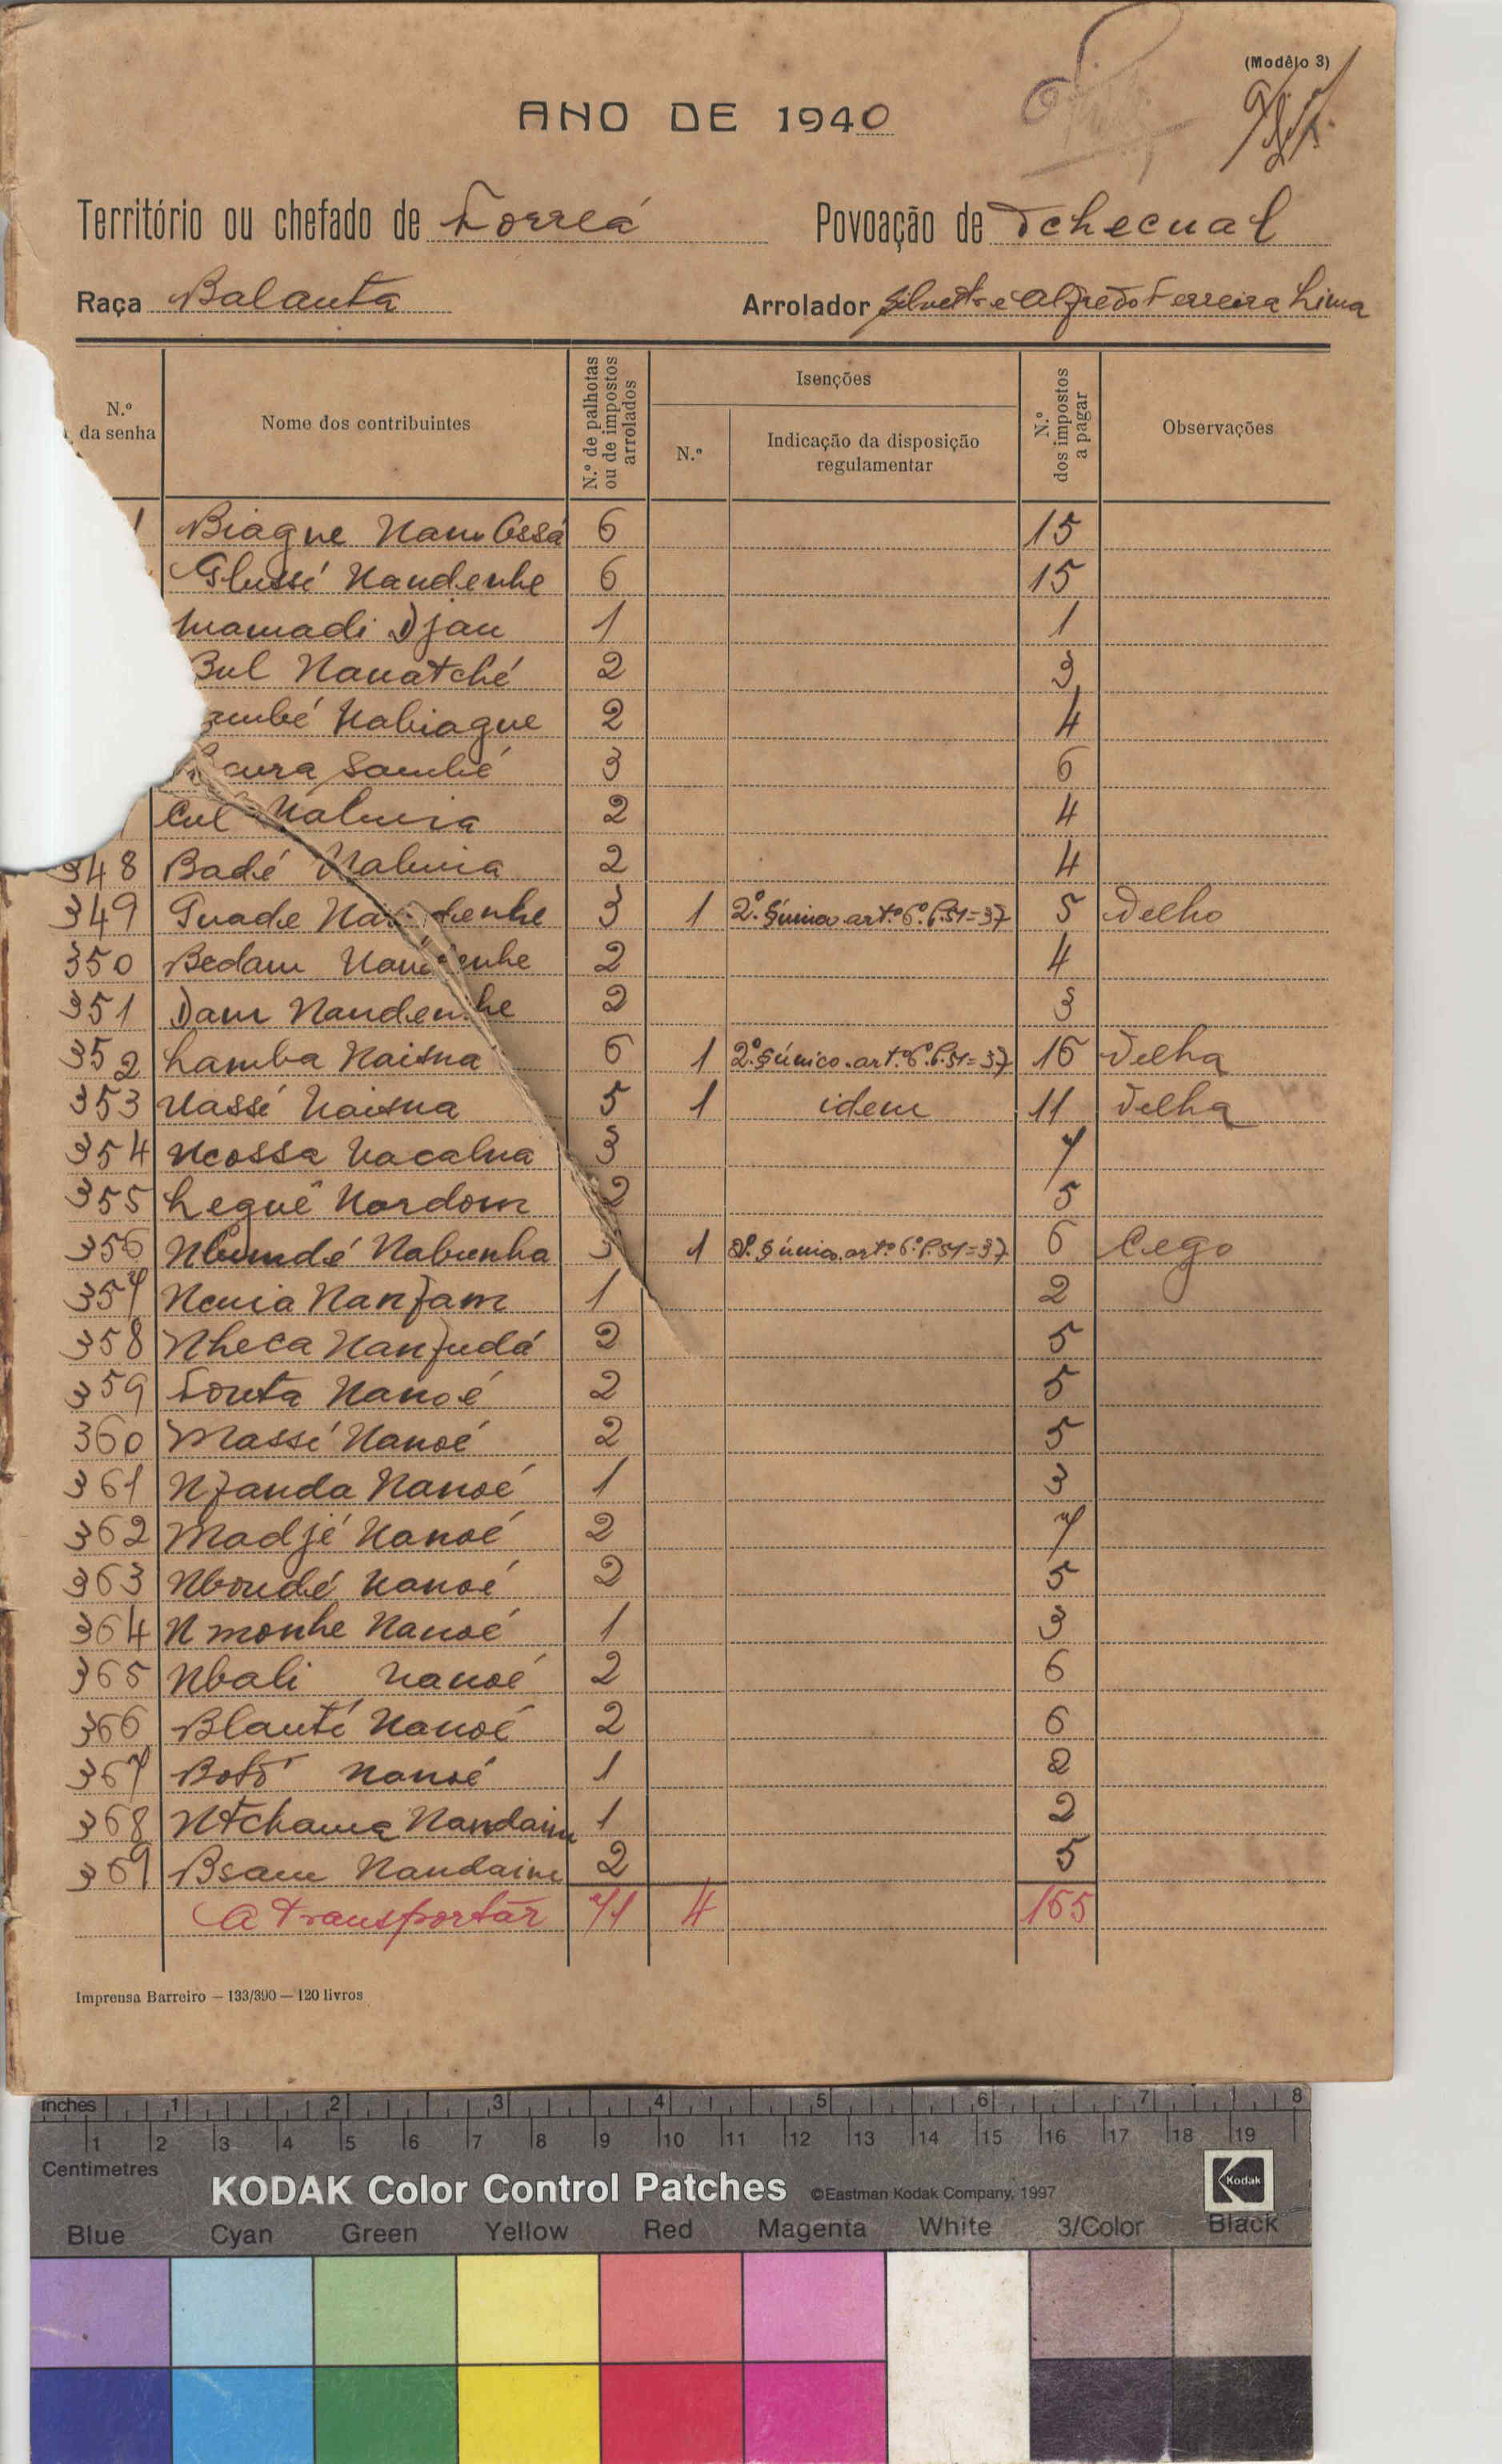 (Modêlo 3)
ANO DE 1940
Território ou chefado de Forreá Povoação de Tchecual
Raça Balanta Arrolador Silvestre Alfredo Ferreira Lima
N.º da senha
Nome dos contribuintes
N.º de palhotas ou de impostos arrolados
Isenções
N.º
Indicação da disposição regulamentar
N.º dos impostos a pagar
Observações
1 Biague Nam 6 15
Glussé Nandenhe 6 15
Mamadi Djau 1 1
Bul Nauatché 2 3
Nabiague 2 4
Sambé 3 6
Cul Nabuia 2 4
348 Badé Nabuia 2 4
349 Guade 3 1 2º § único artº 6º P. 51=37 5 Velho
350 Bedam 2 4
351 Dam Nandenhe 2 3
352 Lamba Naisna 6 1 2º § único. artº 6º P. 51=37 16 Velha
353 Nassé Naisna 5 1 idem 11 Velha
354 Ncossa Nacalna 3 7
355 Leguê Nardom 2 5
356 Nbundé Nabunha 3 1 2º § único. artº 6º P. 51=37 6 Cego
357 Ncuia Nanfam 1 2
358 Nheca Nanfudá 2 5
359 Fonta Nanoé 2 5
360 Massé Nanoé 2 5
361 Nfanda Nanoé 1 3
362 Madjé Nanoé 2 7
363 Nboudé Nanoé 2 5
364 Nmonhe Nanoé 1 3
365 Nbali Nanoé 2 6
366 Blanté Nanoé 2 6
367 Botô Nanoé 1 2
368 Ntchama Nandaim 1 2
369 Bsam Nandaim 2 5
A transportar 71 4 165
Imprensa Barreiro — 133/390 — 120 livros
inches 1 2 3 4 5 6 7 8
1 2 3 4 5 6 7 8 9 10 11 12 13 14 15 16 17 18 19
Centimetres
KODAK Color Control Patches ©Eastman Kodak Company, 1997 Kodak
Blue Cyan Green Yellow Red Magenta White 3/Color Black